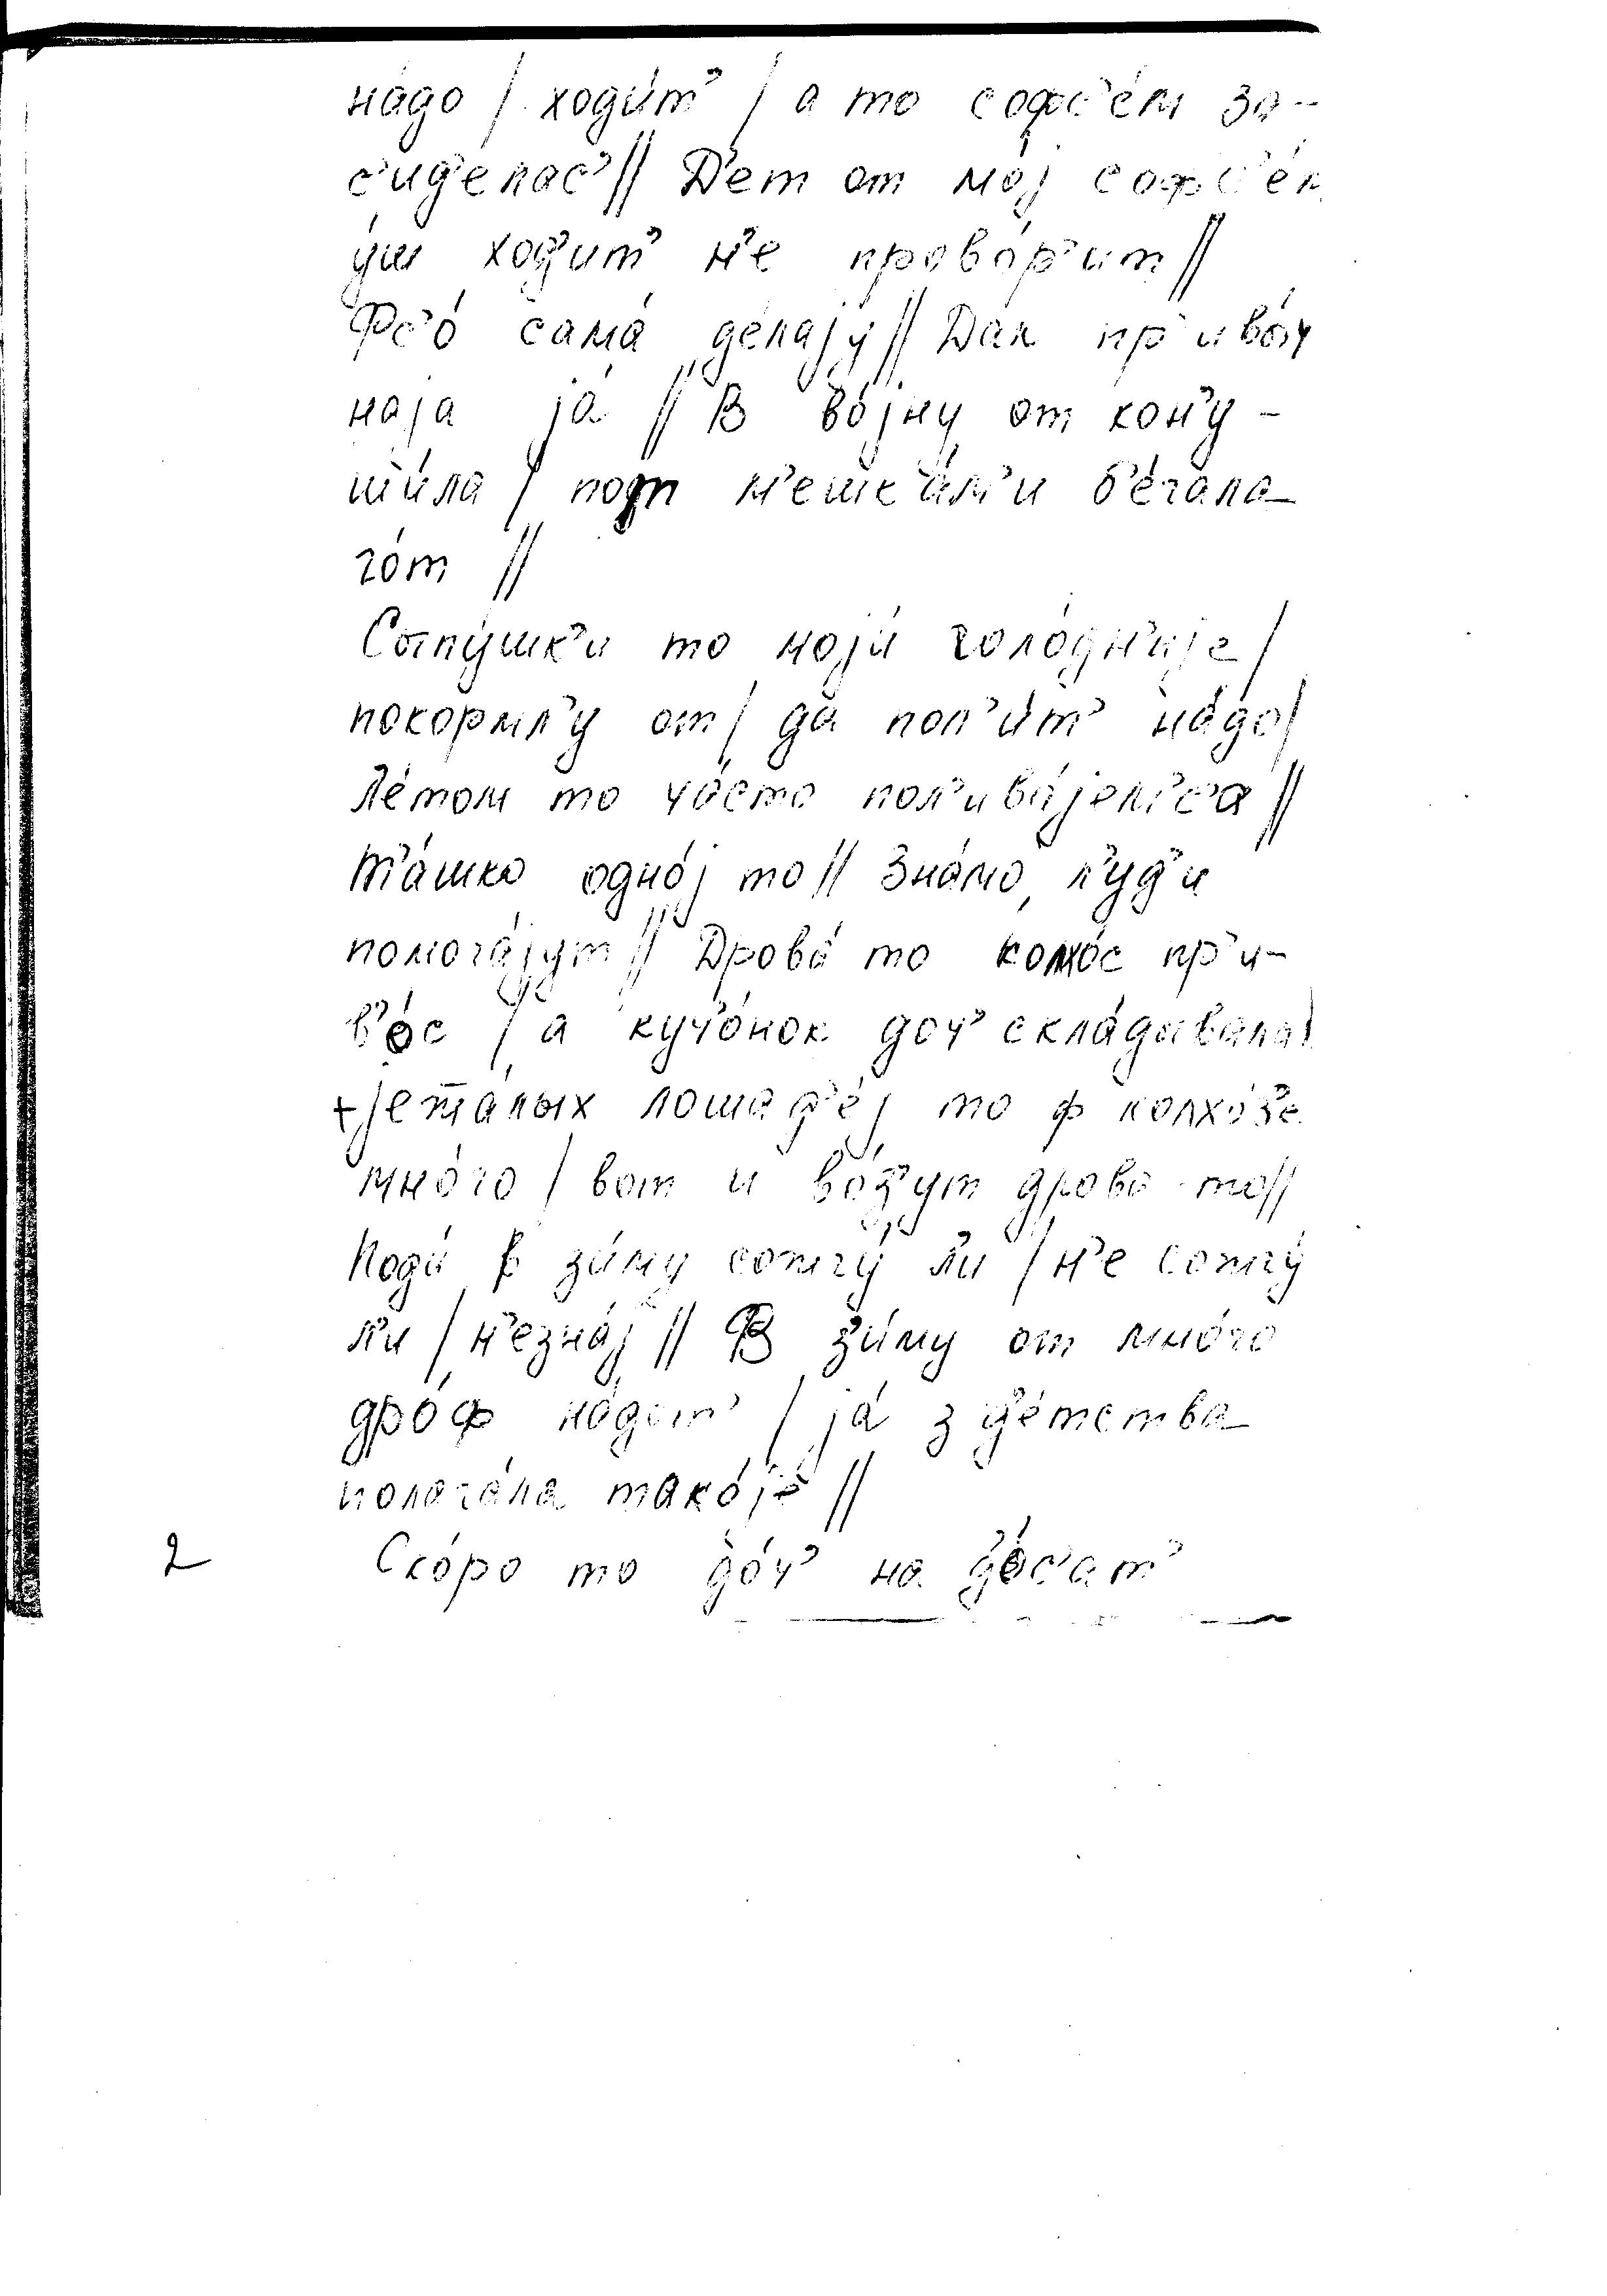 на́до / ходи́т' / а то софс'е́м за-
с'ид'елас' // Д'ет от мо́ј софс'е́м
у́ш ход'ит' н'е прово́р'ит //
Фс'о́ сама́ де́лају // Дак пр'ивы́ч
наја ја́ // В во́јну от кон'у-
ши́ла / под м'ешка́м'и б'е́гала
го́т //
Сыпу́шк'и то моји́ голо́дн'ије /
покормл'у от / да пол'и́т' на́до /
Ле́том то ча́сто пол'ива́јем'са //
Т'а́шко одно́ј то // Зна́мо л'уд'и
помога́јут // Дрова́ то колхо́с пр'и-
в'о́с / а куч'о́нок доч' скла́дывала /
+ јета́лых лошад'е́ј то ф колхо́з'е
мно́го / вот и во́з'ут дрова то //
Поди́ в зи́му сожгу́ л'и / н'е сожгу́
л'и / н'езна́ј // В з'и́му от мно́го
дро́ф на́дот' / ја́ з д'е́тства
полага́ла тако́јо //
2 Ско́ро то до́ч' на д'о́с'ат'